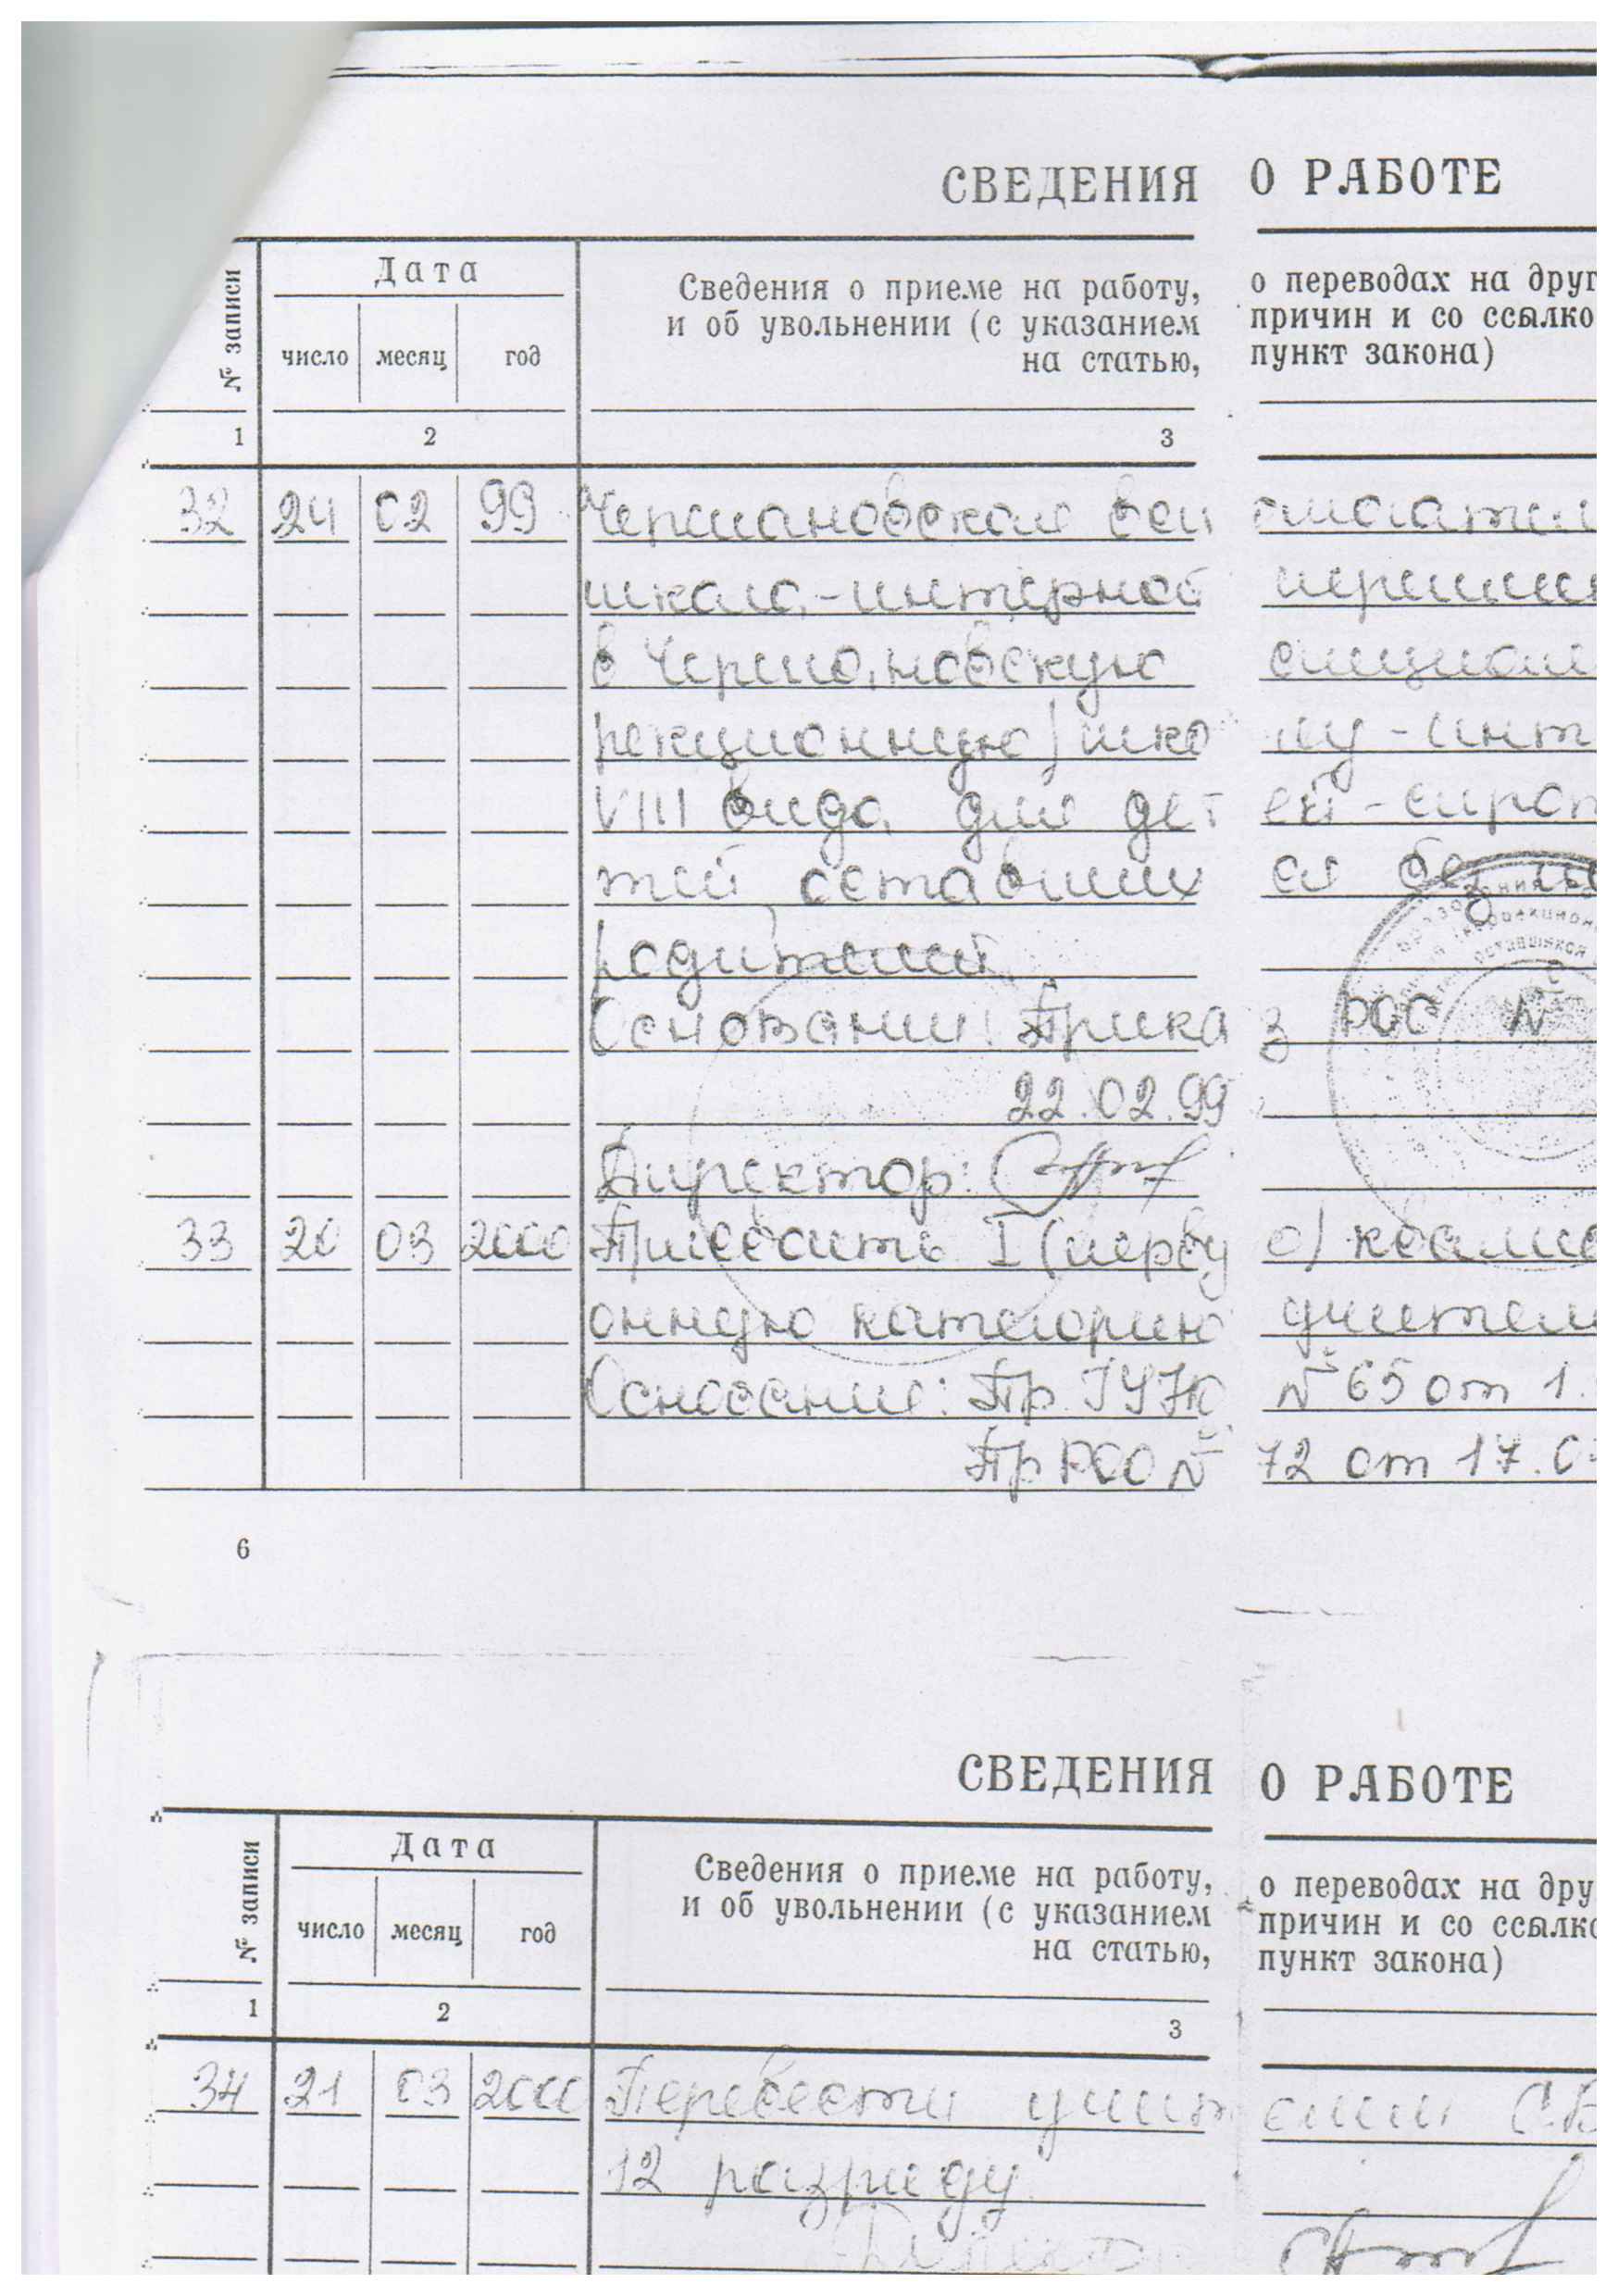 СВЕДЕНИЯ О РАБОТЕ
№ записи
Дата
число месяц год
Сведения о приеме на работу, о переводах на друг
и об увольнении (с указанием причин и со ссылко
на статью, пункт закона)
1 2 3
32 24 02 99 Чермановская
школа-интернат
в Чермановскую специал
рекционную) шко лу-инт
VIII вида для дет ей-сирот
тей, оставших ся без по
родителей
Основание: Прика з РОО №
22.02.99
Директор:
33 20 03 2000 Присвоить I (перву ю) квалифи
онную категорию учителя
Основание: Пр. №65 от 1.
Пр РОО № 72 от 17.0
6
СВЕДЕНИЯ О РАБОТЕ
№ записи
Дата
число месяц год
Сведения о приеме на работу, о переводах на дру
и об увольнении (с указанием причин и со ссылко
на статью, пункт закона)
1 2 3
34 21 03 2000 Перевести учит
12 разряду